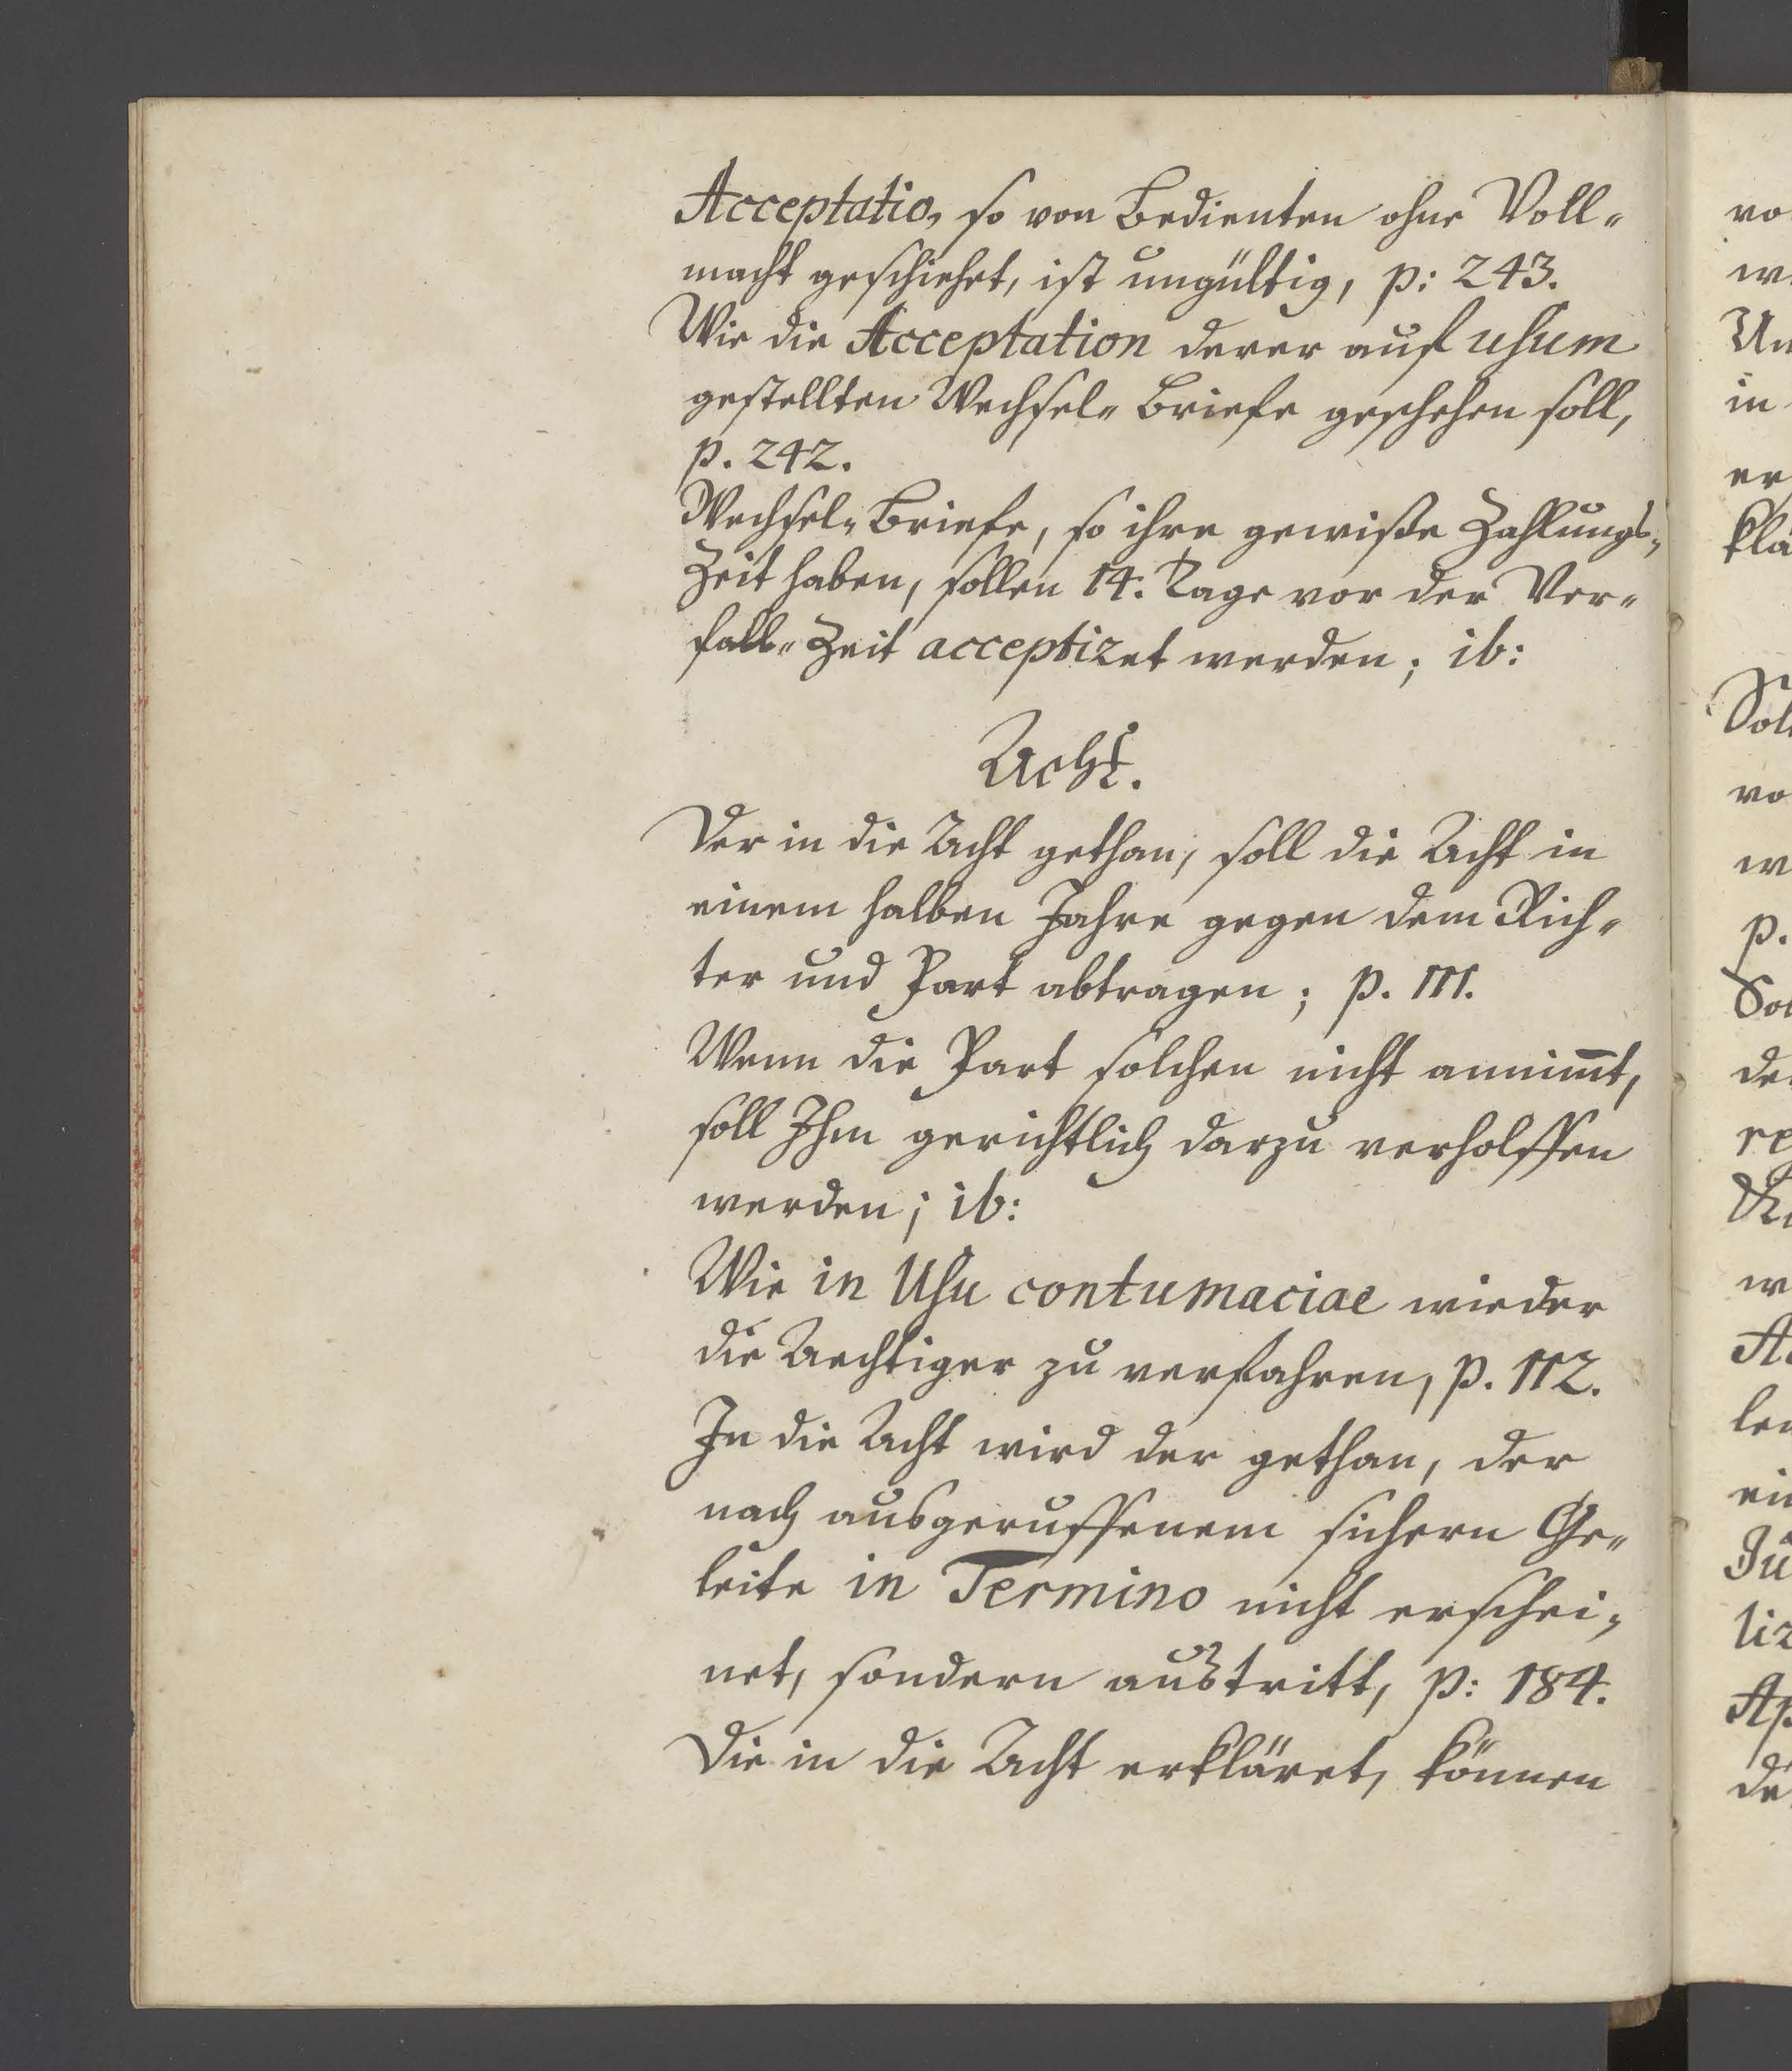 Acceptatio, so von Bedienten ohne Voll-
macht geschiehet, ist ungültig, p: 243.
Wie die Acceptation derer auf usum
gestellten Wechsel-Briefe geschehen soll,
p. 242.
Wechsel-Briefe, so ihre gewiße Zahlungs-
Zeit haben, sollen 14. Tage vor der Ver-
fall-Zeit acceptiret werden; ib:
Acht.
Der in die Acht gethan, soll die Acht in
einem halben Jahre gegen dem Rich-
ter und Part abtragen; p. 111.
Wenn die Part solchen nicht annim̄t,
soll Ihm gerichtlich darzu verholffen
werden; ib:
Wie in Usu contumaciae wieder
die Aechtiger zu verfahren, p. 112.
In die Acht wird der gethan, der
nach ausgeruffenem sichern Ge-
leite in Termino nicht erschei-
net, sondern austritt, p: 184.
Die in die Acht erkläret, können